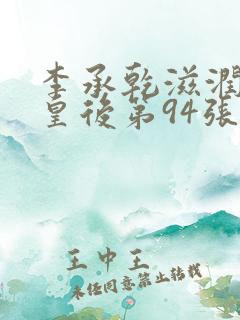 李承乾滋润
皇後第94张
王中王
未经同意禁止转载